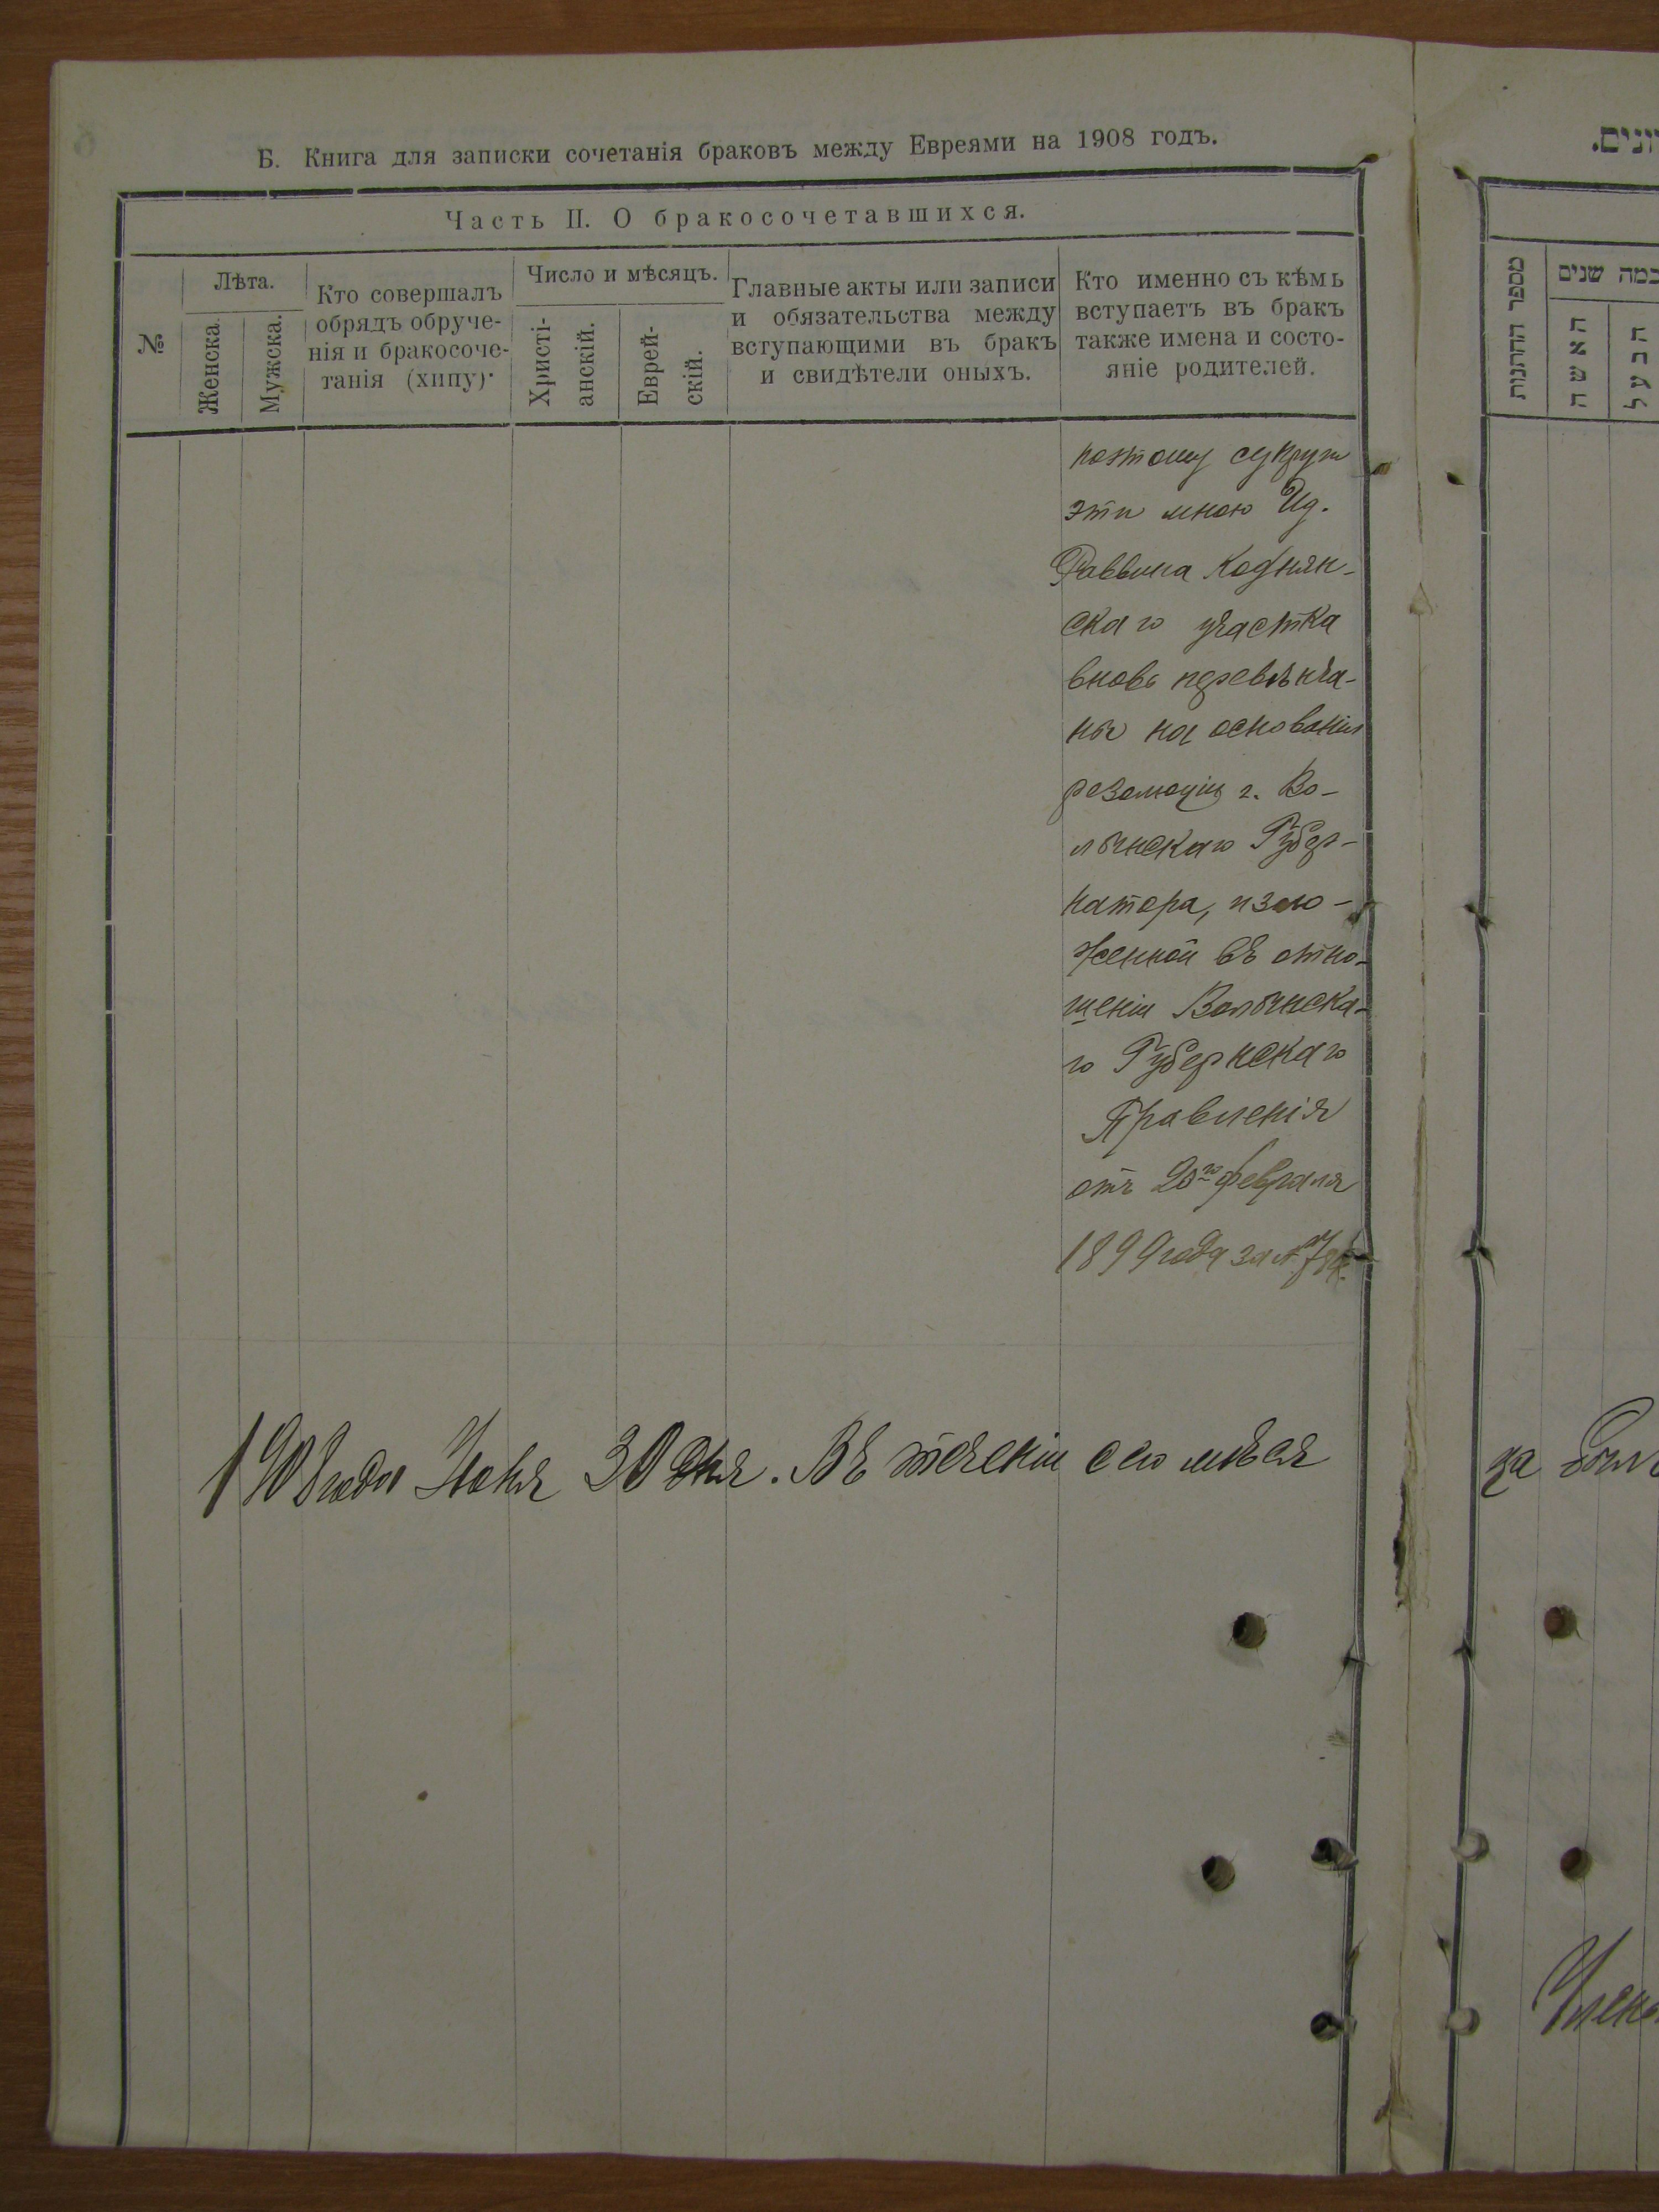 Б. Книга для записки сочетанія браковъ между Евреями на 1908 годъ.
Часть II. О бракосочетавшихся.
№
Лѣта.
Женска.
Мужска.
Кто совершалъ
обрядъ обруче-
нія и бракосоче-
танія (хипу).
Число и мѣсяцъ.
Христі-
анскій.
Еврей-
скій.
Главные акты или записи
и обязательства между
вступающими въ бракъ
и свидѣтели оныхъ.
Кто именно съ кѣмъ
вступаетъ въ бракъ
также имена и состо-
яніе родителей.
поэтому супруги
эти мною Ид.
Раввина Коднян-
скаго участка
вновь перевѣнча-
ны на основаніи
резолюціи г. Во-
лынскаго Губер-
натора, изло-
женной въ отно-
шеніи Волынска-
го Губернскаго
Правленія
отъ 20го февраля
1899 года за №
1908 года Іюня 30 дня. Въ теченіи сего мѣся
ца было
מספר החתונות
כמה שנים
האשה
הבעל